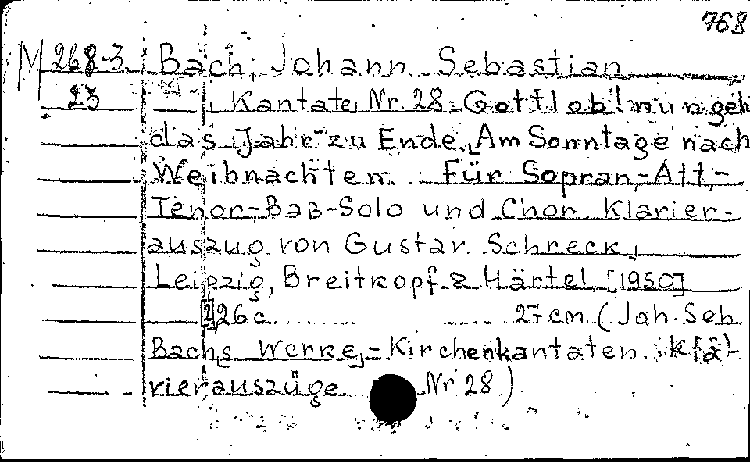 768
M 268-3 Bach, Johann Sebastian
23 Kantate Nr. 28: Gottlob! nun geh
das Jahr zu Ende. Am Sonntage nach
Weihnachten. Für Sopran-, Alt-,
Tenor-, Baß-Solo und Chor. Klavier-
auszug von Gustav Schreck.
Leipzig, Breitkopf & Härtel [1950]
26 c. 27 cm (Joh. Seb.
Bachs Werke. - Kirchenkantaten. Kla-
vierauszüge Nr 28)